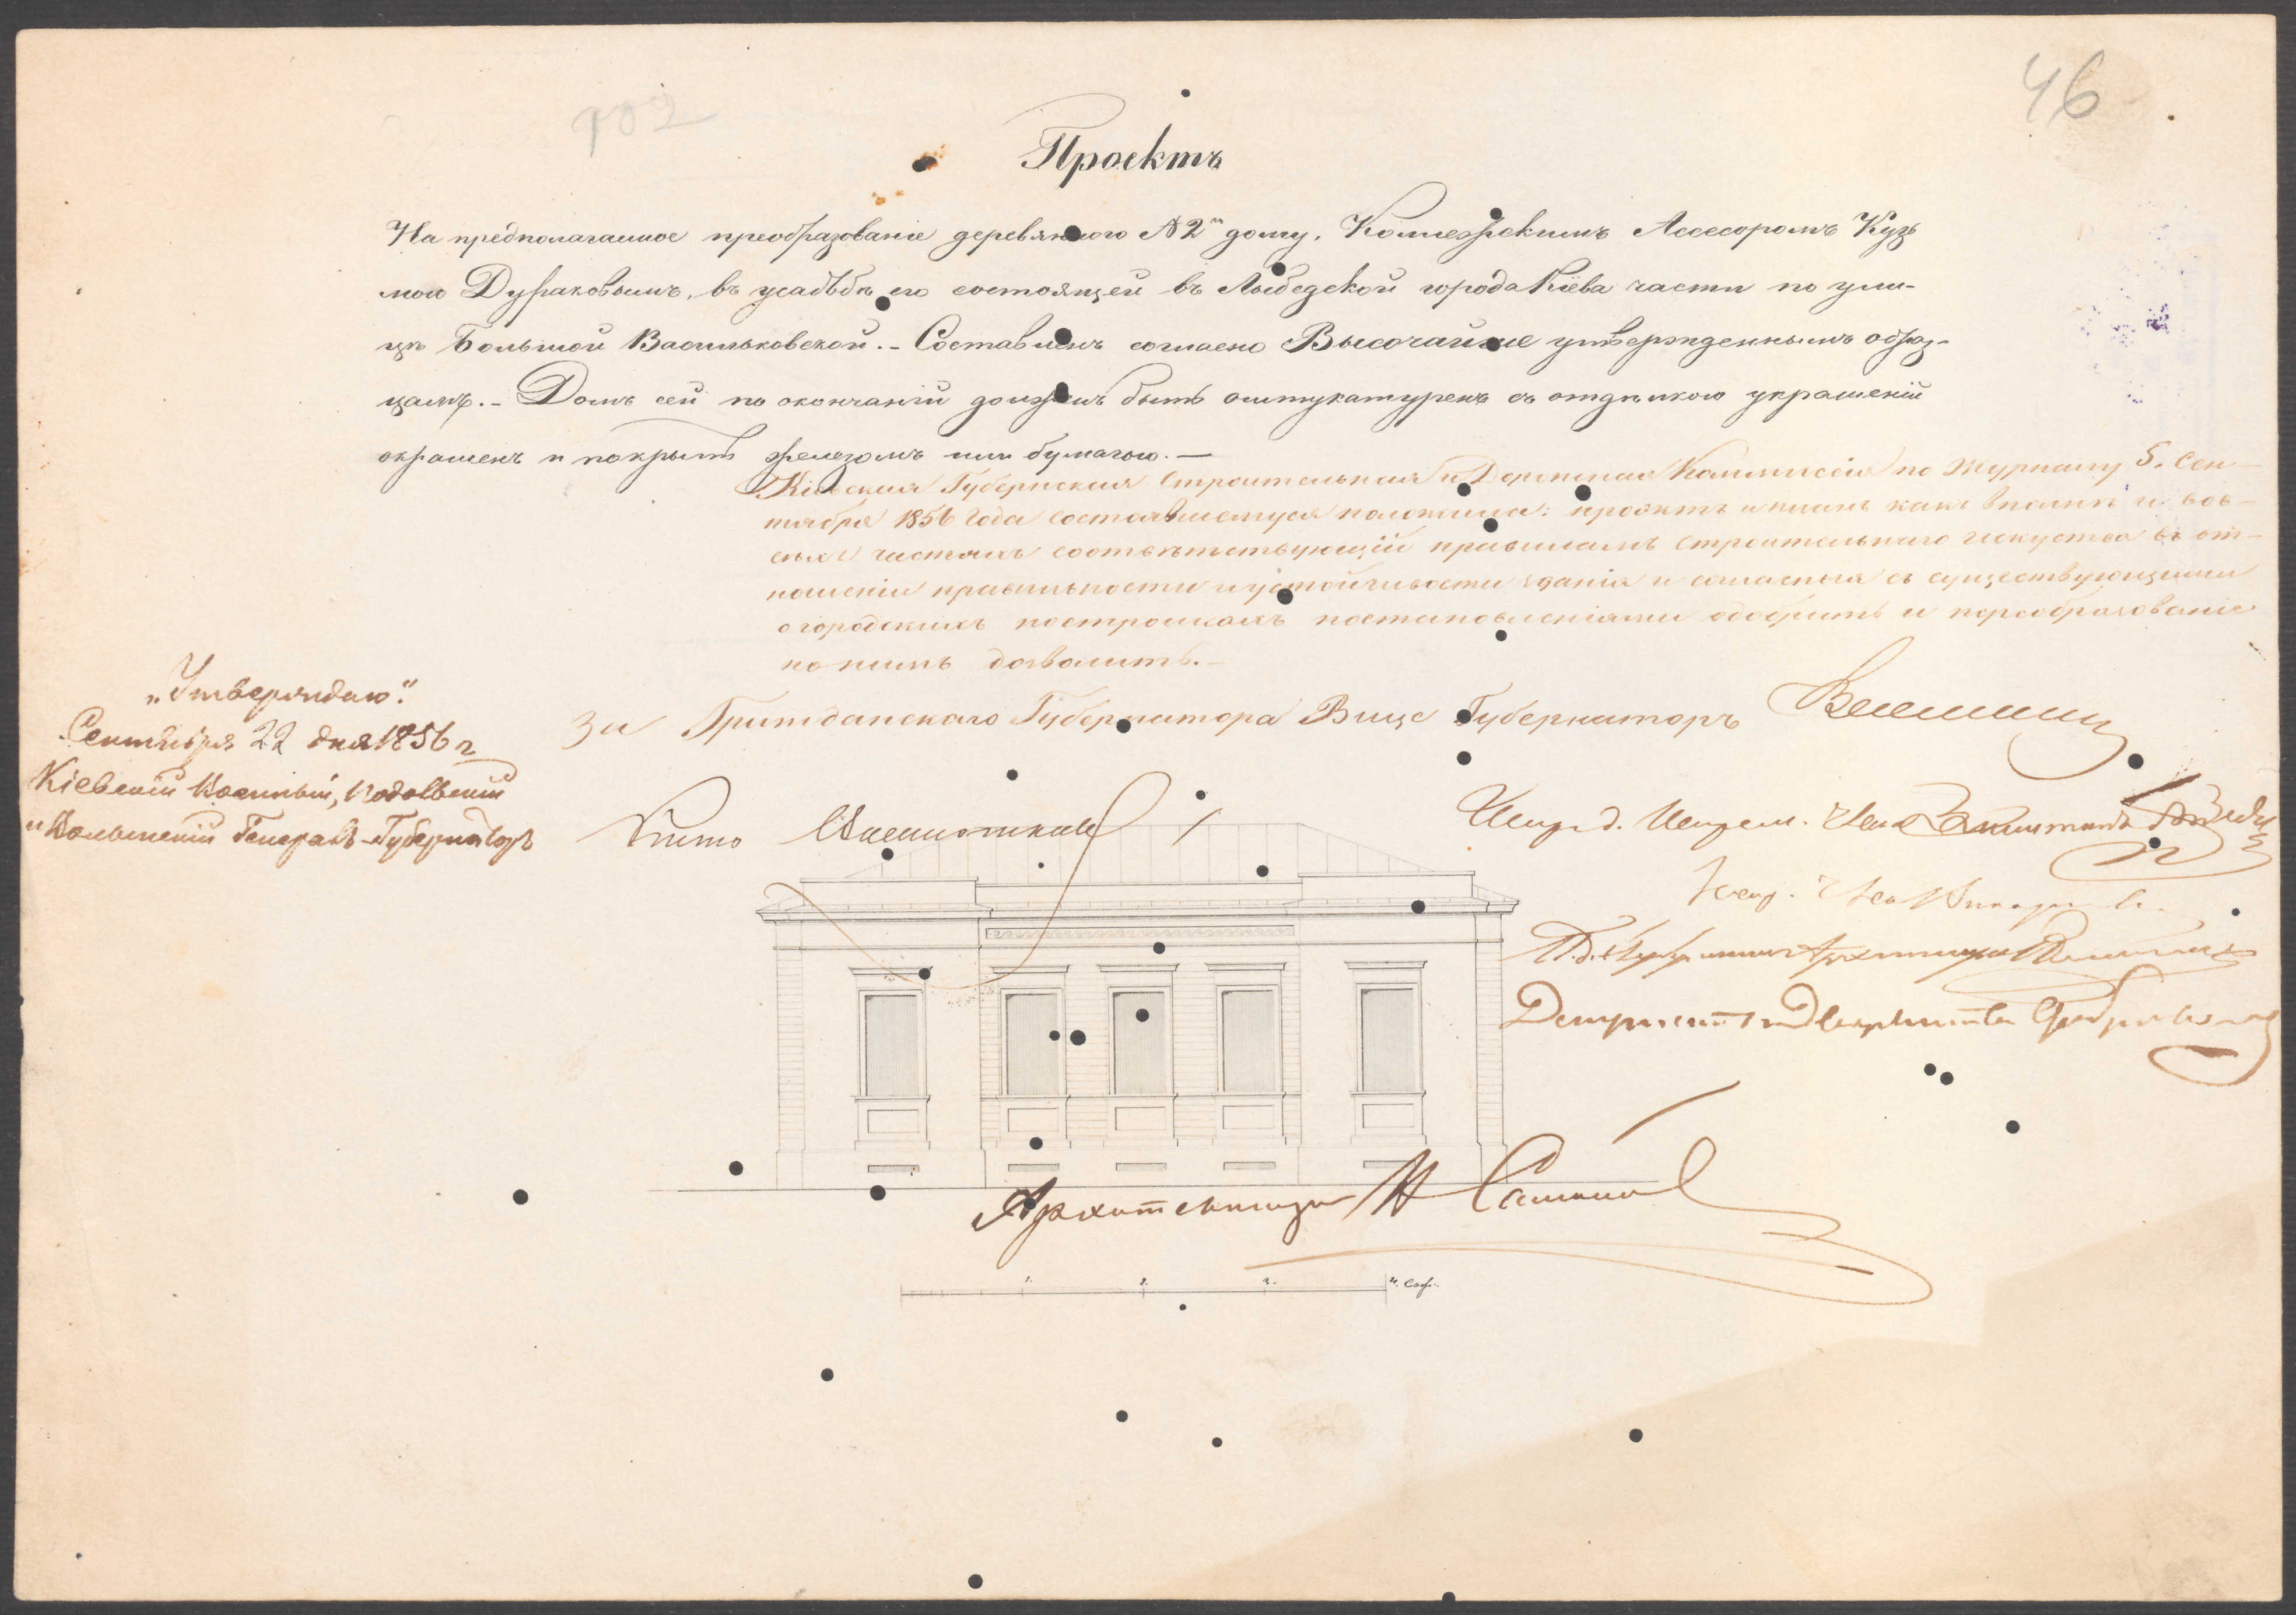 102
46
Проектъ
На предполагаемое преобразованіе деревянного №2 дому, Коллежскимъ Ассесоромъ Кузь
мою Дураковымъ, въ усадьбѣ его состоящей въ Лыбедской города Кіева части по ули-
цѣ Большой Васильковской. - Составленъ согласно Высочайше утвержденнымъ образ-
цамъ. - Домъ сей по окончаніи долженъ быть оштукатуренъ съ отдѣлкою украшеній
окрашенъ и покрытъ железомъ или бумагою. —
Кіевская Губернская Строительная и Дорожная Коммиссія по журналу 5. Сен-
тября 1856 года состоявшемуся положила: проэктъ и планъ какъ вполнѣ и во в-
сѣхъ частяхъ соотвѣтствующій правиламъ строительнаго искуства въ от-
ношеніи правильности и устойчивости зданія и согласныя съ существующими
о городскихъ постройкахъ постановленіями одобрить и переобразованіе
по нимъ дозволить. -
„Утверждаю".
Сентября 22 дня 1856 г.
Кіевскій Военный, Подольскій
и Волынскій Генералъ-Губернаторъ
За Гражданскаго Губернатора Вице Губернаторъ
Испр. д.
Депутатъ Дворянства
Архитекторъ
1. 2. 3. 4. Саж.